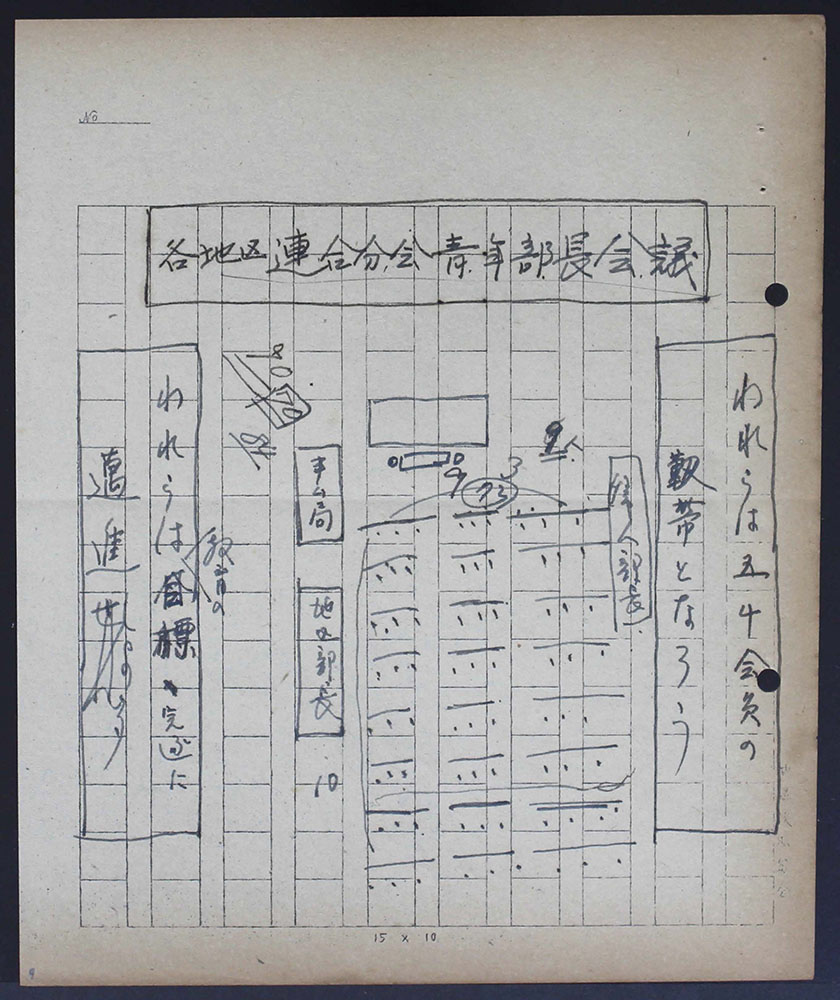 No
各地区連合分会青年部長会議
われらは五十会員の
靱帯となろう
婦人部長
9人
3
10
9
73
01
事ム局
地区部長
10
108
70
教育の
われらは目標完遂に
邁進せ
15 × 10